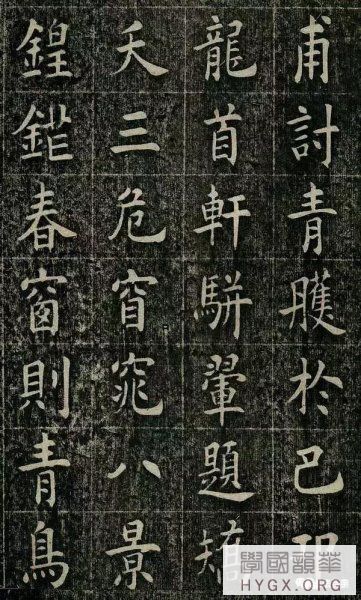 甫討青臒於巴
龍首軒駢翬題
夭三危窅窕八景
鍠春窗則青鳥
華韻國學
HYGX.ORG